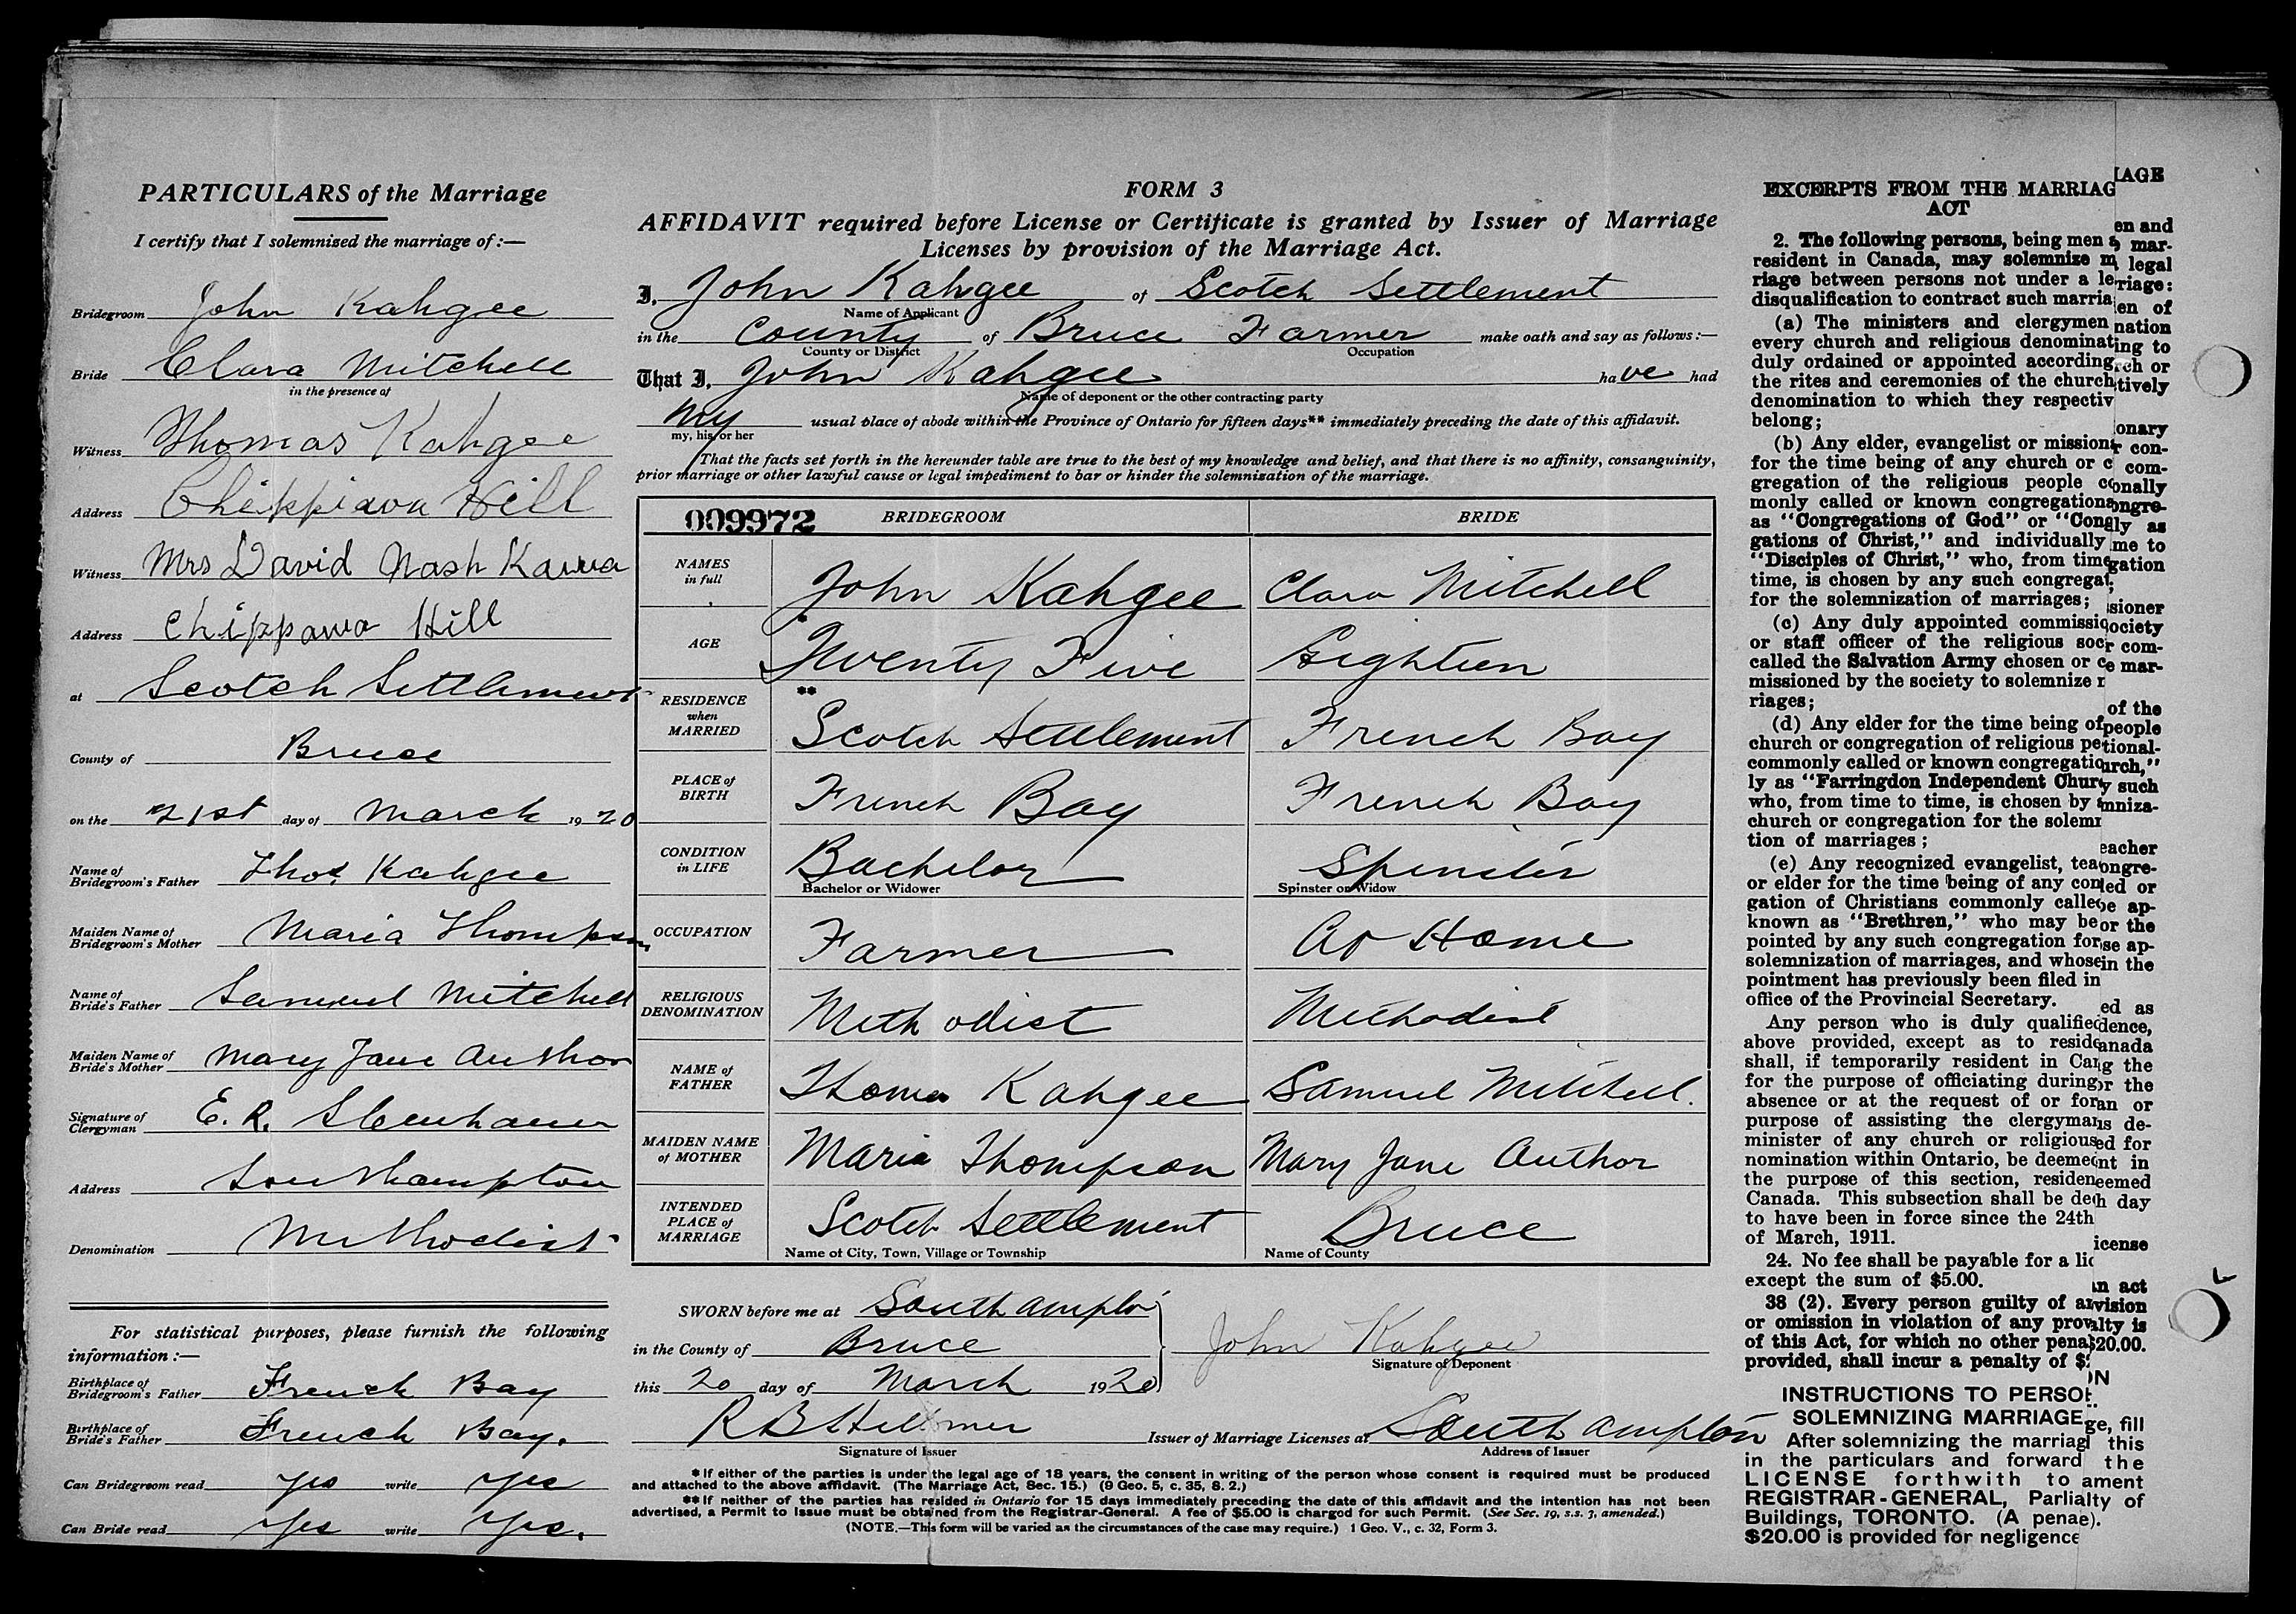 PARTICULARS of the Marriage
I certify that I solemnized the marriage of :—
Bridegroom John Kahgee
Bride Clara Mitchell
in the presence of
Witness Thomas Kahgee
Address Chippiawa Hill
Witness Mrs David Nash Kawa
Address Chippawa Hill
at Scotch Settlement
County of Bruce
on the 21st day of March 1920
Name of Bridegroom's Father Thos. Kahgee
Maiden Name of Bridegroom's Mother Maria Thompson
Name of Bride's Father Samuel Mitchell
Maiden Name of Bride's Mother Mary Jane Author
Signature of Clergyman E. R.
Address Southampton
Denomination Methodist
For statistical purposes, please furnish the following
information :—
Birthplace of Bridegroom's Father French Bay
Birthplace of Bride's Father French Bay.
Can Bridegroom read yes write yes
Can Bride read yes write yes.
FORM 3
AFFIDAVIT required before License or Certificate is granted by Issuer of Marriage
Licenses by provision of the Marriage Act.
I, John Kahgee of Scotch Settlement
Name of Applicant
in the County of Bruce Farmer make oath and say as follows :—
County or District Occupation
That I, John Kahgee have had
Name of deponent or the other contracting party
my usual place of abode within the Province of Ontario for fifteen days** immediately preceding the date of this affidavit.
my, his, or her
That the facts set forth in the hereunder table are true to the best of my knowledge and belief, and that there is no affinity, consanguinity,
prior marriage or other lawful cause or legal impediment to bar or hinder the solemnization of the marriage.
009972 BRIDEGROOM BRIDE
NAMES in full John Kahgee Clara Mitchell
AGE * Twenty Five Eighteen
RESIDENCE when MARRIED ** Scotch Settlement French Bay
PLACE of BIRTH French Bay French Bay
CONDITION in LIFE Bachelor Spinster
Bachelor or Widower Spinster or Widow
OCCUPATION Farmer At Home
RELIGIOUS DENOMINATION Methodist Methodist
NAME of FATHER Thomas Kahgee Samuel Mitchell.
MAIDEN NAME of MOTHER Maria Thompson Mary Jane Author
INTENDED PLACE of MARRIAGE Scotch Settlement Bruce
Name of City, Town, Village or Township Name of County
SWORN before me at Southampton
in the County of Bruce John Kahgee
Signature of Deponent
this 20 day of March 1920
R B Issuer of Marriage Licenses at Southampton
Signature of Issuer Address of Issuer
* If either of the parties is under the legal age of 18 years, the consent in writing of the person whose consent is required must be produced
and attached to the above affidavit. (The Marriage Act, Sec. 15.) (9 Geo. 5, c. 35, S. 2.)
** If neither of the parties has resided in Ontario for 15 days immediately preceding the date of this affidavit and the intention has not been
advertised, a Permit to Issue must be obtained from the Registrar-General. A fee of $5.00 is charged for such Permit. (See Sec. 19, s.s. 3, amended.)
(NOTE.—This form will be varied as the circumstances of the case may require.) 1 Geo. V., c. 32, Form 3.
EXCERPTS FROM THE MARRIAG
ACT
2. The following persons, being men a
resident in Canada, may solemnize m
riage between persons not under a le
disqualification to contract such marria
(a) The ministers and clergymen
every church and religious denominat
duly ordained or appointed according
the rites and ceremonies of the church
denomination to which they respectiv
belong;
(b) Any elder, evangelist or mission
for the time being of any church or c
gregation of the religious people co
monly called or known congregationa
as "Congregations of God" or "Cong
gations of Christ," and individually
"Disciples of Christ," who, from time
time, is chosen by any such congregat
for the solemnization of marriages;
(c) Any duly appointed commissio
or staff officer of the religious soc
called the Salvation Army chosen or c
missioned by the society to solemnize
riages;
(d) Any elder for the time being of
church or congregation of religious pe
commonly called or known congregatio
ly as "Farringdon Independent Chur
who, from time to time, is chosen by
church or congregation for the solem
tion of marriages;
(e) Any recognized evangelist, tea
or elder for the time being of any con
gation of Christians commonly calle
known as "Brethren," who may be
pointed by any such congregation for
solemnization of marriages, and whose
pointment has previously been filed in
office of the Provincial Secretary.
Any person who is duly qualified
above provided, except as to reside
shall, if temporarily resident in Ca
for the purpose of officiating during
absence or at the request of or for
purpose of assisting the clergyman
minister of any church or religious
nomination within Ontario, be deemed
the purpose of this section, residen
Canada. This subsection shall be de
to have been in force since the 24th
of March, 1911.
24. No fee shall be payable for a lic
except the sum of $5.00.
38 (2). Every person guilty of a
or omission in violation of any prov
of this Act, for which no other pena
provided, shall incur a penalty of $
INSTRUCTIONS TO PERSO
SOLEMNIZING MARRIAGE
After solemnizing the marriag
in the particulars and forward
LICENSE forthwith to
REGISTRAR-GENERAL, Parlia
Buildings, TORONTO. (A pena
$20.00 is provided for negligence
IAGE
en and
mar-
legal
riage:
en of
nation
ing to
rch or
tively
onary
con-
com-
onally
ongre-
ly as
me to
gation
sioner
ociety
com-
e mar-
of the
people
tional-
urch,"
y such
mniza-
eacher
ongre-
led or
e ap-
or the
se ap-
in the
ed as
dence,
anada
g the
or the
an or
is de-
ed for
nt in
eemed
h day
icense
n act
vision
lty is
$20.00.
ON
ge, fill
this
the
ament
lty of
e).